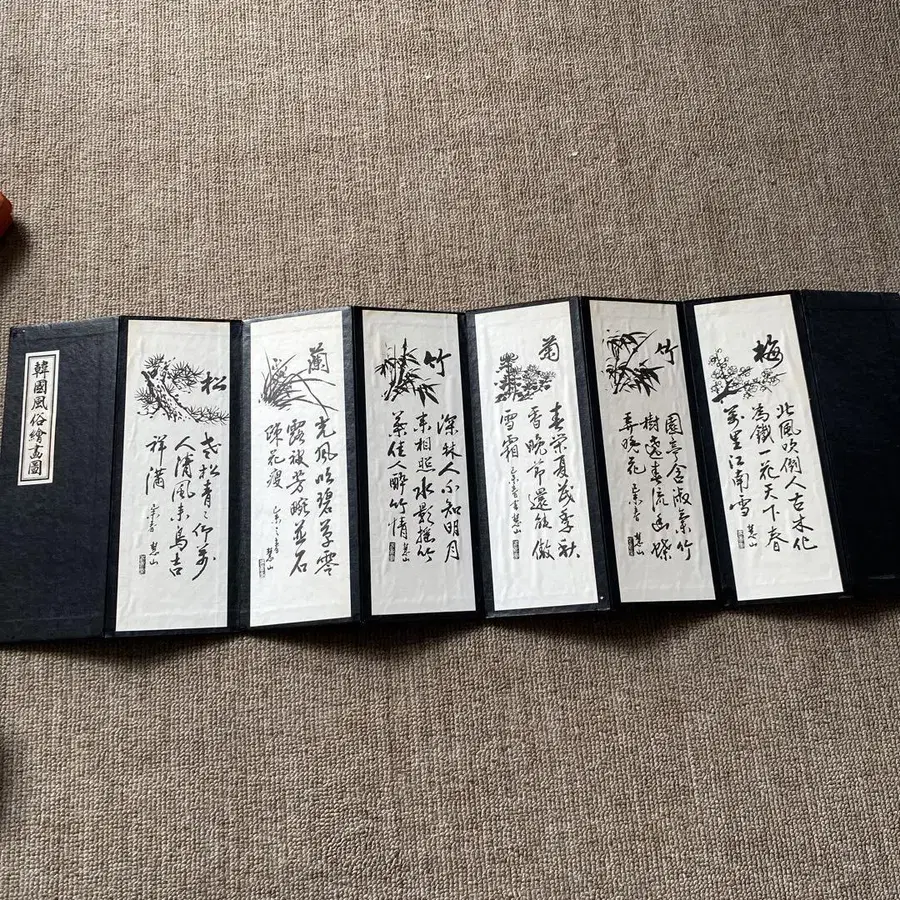 韓國風俗繪畫圖
松
老松青々仰萬
人清風來為吉
祥滿
慧山
蘭
光風吹碧草零
露被芳畹並石
疎花瘦
慧山
竹
深林人不知明月
來相照水影搖竹
葉佳人醉竹情
慧山
菊
春榮夏茂季秋
香晚節還能傲
雪霜
慧山
竹
園亭含淑氣竹
樹遶春流幽蝶
弄晚花
慧山
梅
北風吹倒人古木化
為鐵一花天下春
萬里江南雪
慧山